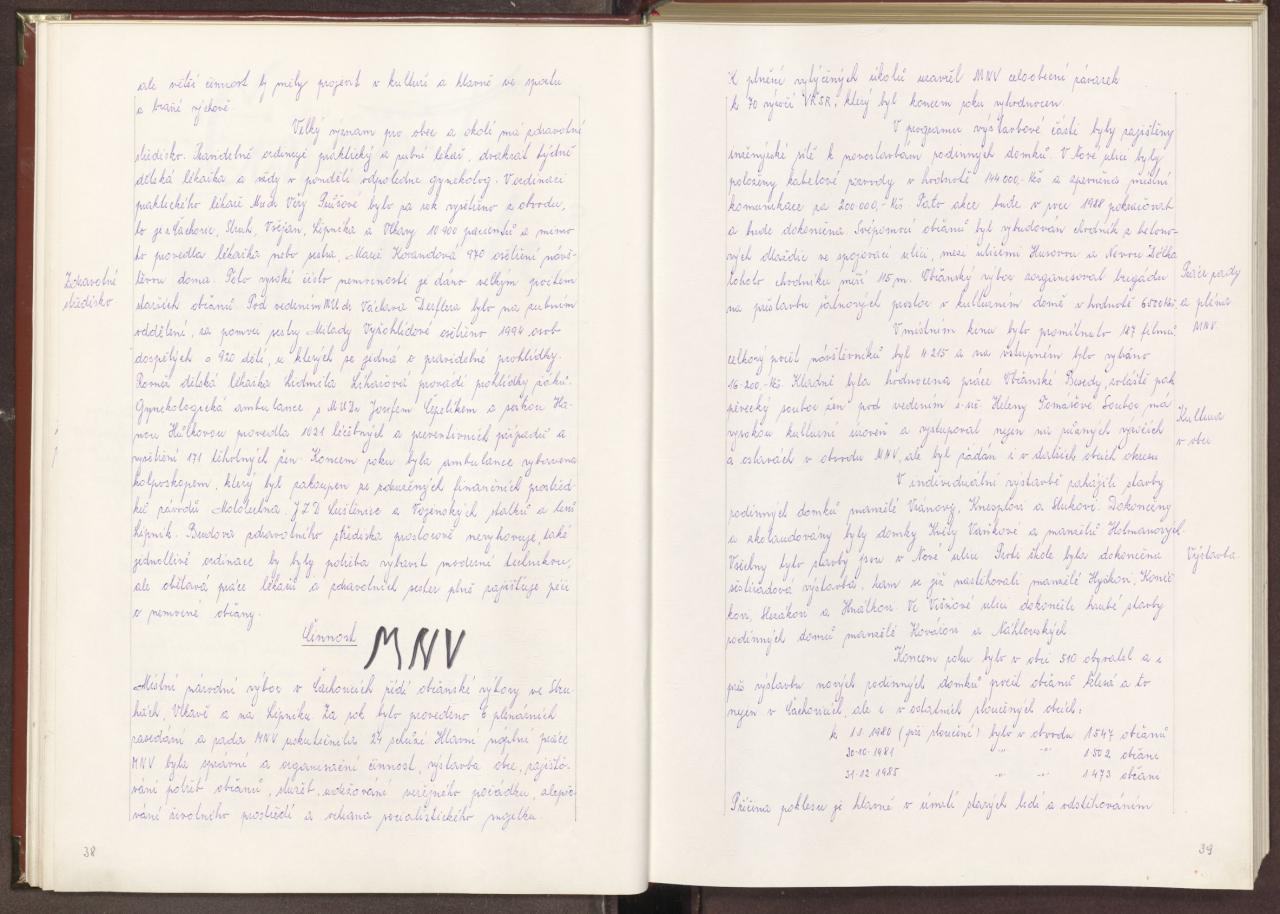 ale větší činnost by měly projevit v kultuře a hlavně ve sportu
a branné výchově.
Velký význam pro obec a okolí má zdravotní
středisko. Pravidelně ordinuje praktický a zubní lékař, dvakrát týdně
dětská lékařka a vždy v pondělí odpoledne gynekolog. V ordinaci
praktického lékaře Mudr Věry Průšové bylo za rok vyšetřeno z obvodu,
to je z Čachovic, Struh, Všejan, Lipníka a Vlkavy 10 900 pacientů a mimo
to provedla lékařka nebo sestra, Marie Korandová 970 ošetření návš-
těvou doma. Toto vysoké číslo nemocnosti je dáno velkým počtem
starších občanů. Pod vedením MUdr Václava Deiflera bylo na zubním
oddělení, za pomoci sestry Milady Vyšohlídové ošetřeno 1994 osob
dospělých a 920 dětí, u kterých se jedná o pravidelné prohlídky.
Rovněž dětská lékařka Ludmila Lihařová provádí prohlídky žáků.
Gynekologická ambulance s MUDr Josefem Čepelíkem a sestrou Ha-
nou Hůlkovou provedla 1021 léčebných a preventivních případů a
vyšetření 171 těhotných žen. Koncem roku byla ambulance vybavena
kolposkopem, který byl zakoupen ze sdružených finančních prostřed-
ků závodů Mototechna, JZD Luštěnice a Vojenských statků a lesů
Lipník. Budova zdravotního střediska prostorově nevyhovuje, také
jednotlivé ordinace by bylo potřeba vybavit moderní technikou,
ale obětavá práce lékařů a zdravotních sester plně zajišťuje péči
o nemocné občany.
Zdravotní
středisko
Činnost MNV
Místní národní výbor v Čachovicích řídí občanské výbory ve Stru-
hách, Vlkavě a na Lipníku. Za rok bylo provedeno 6 plenárních
zasedání a rada MNV uskutečnila 24 schůzí. Hlavní náplní práce
MNV byla správní a organizační činnost, výstavba obce, zajiště-
vání potřeb občanů, služeb, udržování veřejného pořádku, zlepšo-
vání životního prostředí a ochrana socialistického majetku.
38
K plnění vytýčených úkolů uzavřel MNV celoobecní závazek
k 70 výročí VŘSR, který byl koncem roku vyhodnocen.
V programu výstavbové části byly zajištěny
inženýrské sítě k novostavbám rodinných domků. V Nové ulici byly
položeny kabelové rozvody v hodnotě 144 000,- Kčs a zpevněna místní
komunikace za 200 000,- Kčs. Tato akce bude v roce 1988 pokračovat
a bude dokončena. Svépomocí občanů byl vybudován chodník z betono-
vých dlaždic ve spojovací ulici, mezi ulicemi Husovou a Novou. Délka
tohoto chodníku měří 115 m. Občanský výbor zorganizoval brigádu
na přístavbu šatnových prostor v kulturním domě v hodnotě 6520 Kčs.
Práce rady
a pléna
MNV.
V místním kinu bylo promítnuto 187 filmů,
celkový počet návštěvníků byl 4 215 a na vstupném bylo vybráno
16 200,- Kčs. Kladně byla hodnocena práce Občanské Besedy, zvláště pak
pěvecký soubor žen pod vedením s. uč. Heleny Tomášové. Soubor má
vysokou kulturní úroveň a vystupoval nejen na různých výročích
a oslavách v obvodu MNV, ale byl žádán i v dalších obcích okresu.
Kultura
v obci
V individuální výstavbě zahájili stavby
rodinných domků manželé Vránovy, Knesplovi a Stukovi. Dokončeny
a zkolaudovány byly domky Květy Vaňkové a manželů Holmanových.
Všechny tyto stavby jsou v Nové ulici. Proti škole byla dokončena
šestiřadová výstavba, kam se již nastěhovali manželé Hyškovi, Koníč
kovi, Slezákovi a Hnátkovi. Ve Višňové ulici dokončili hrubé stavby
rodinných domů manželé Kovářovi a Náhlovských
Výstavba
Koncem roku bylo v obci 510 obyvatel a i
přes výstavbu nových rodinných domků počet občanů klesá a to
nejen v Čachovicích, ale i v ostatních sloučených obcích:
k 1.1 1980 (při sloučení) bylo v obvodu 1547 občanů
30.10.1981 " " 1502 občanů
31.12.1985 " " 1473 občanů
Příčina poklesu je hlavně v úmrtí starých lidí a odstěhováním
39